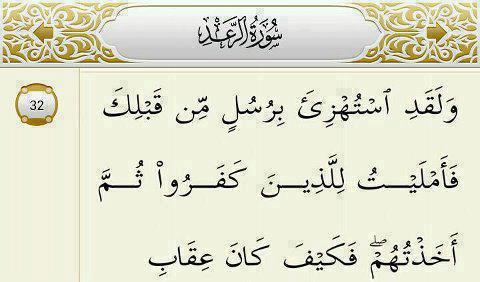 سُورَةُ الرَّعْدِ
32
وَلَقَدِ ٱسْتُهْزِئَ بِرُسُلٍ مِّن قَبْلِكَ
فَأَمْلَيْتُ لِلَّذِينَ كَفَرُوا۟ ثُمَّ
أَخَذْتُهُمْ ۖ فَكَيْفَ كَانَ عِقَابِ